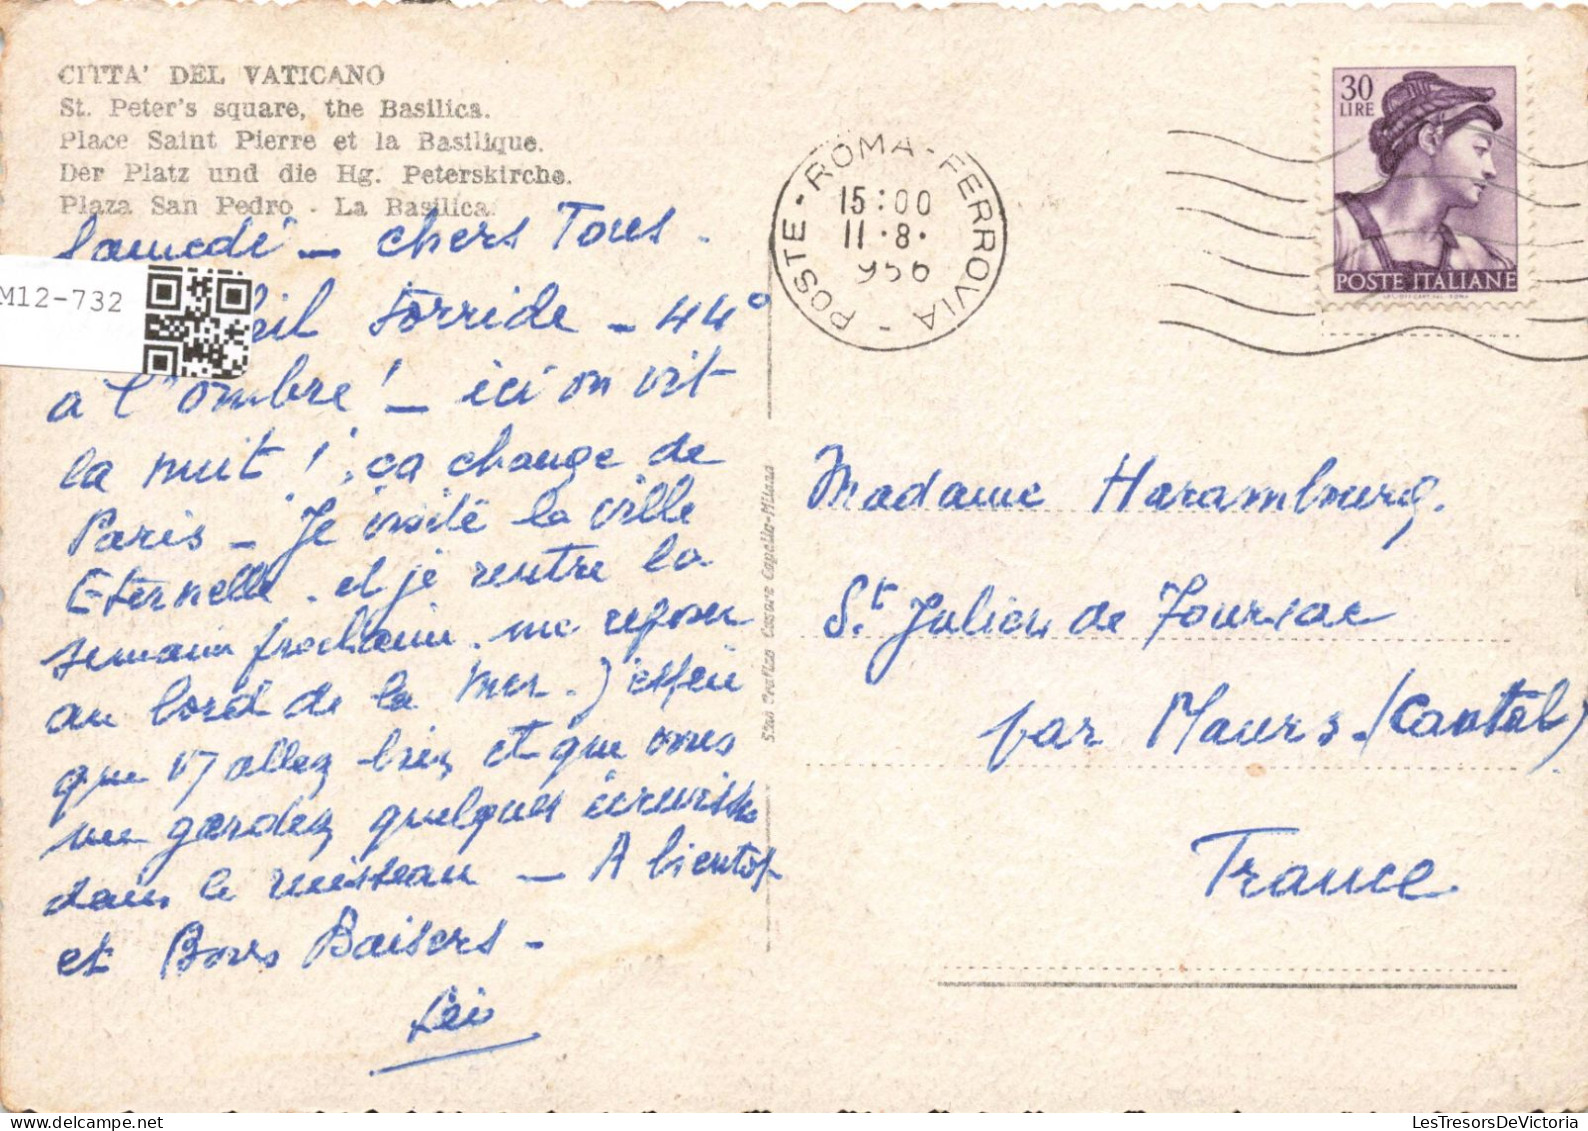 CITTA' DEL VATICANO
St. Peter's square, the Basilica.
Place Saint Pierre et la Basilique.
Der Platz und die Hg. Peterskirche.
Plaza San Pedro - La Basilica
Samedi - chers Tous.
M12-732
torride - 44°
a l'ombre ! - ici on vit
la nuit ! ça change de
Paris - Je visite la ville
Eternelle. et je rentre la
semaine prochaine. me reposer
au bord de la mer. J'espère
que vs allez bien et que vous
me gardez quelques écrevisses
dans le ruisseau - A bientot
et Bons Baisers -
POSTE - ROMA - FERROVIA -
15:00
11.8.
956
30
LIRE
POSTE ITALIANE
Cesare Capello-Milano
Madame Harambourg.
St. Julien de Toursac
par Maurs. (Cantal)
France
LesTresorsDeVictoria.com